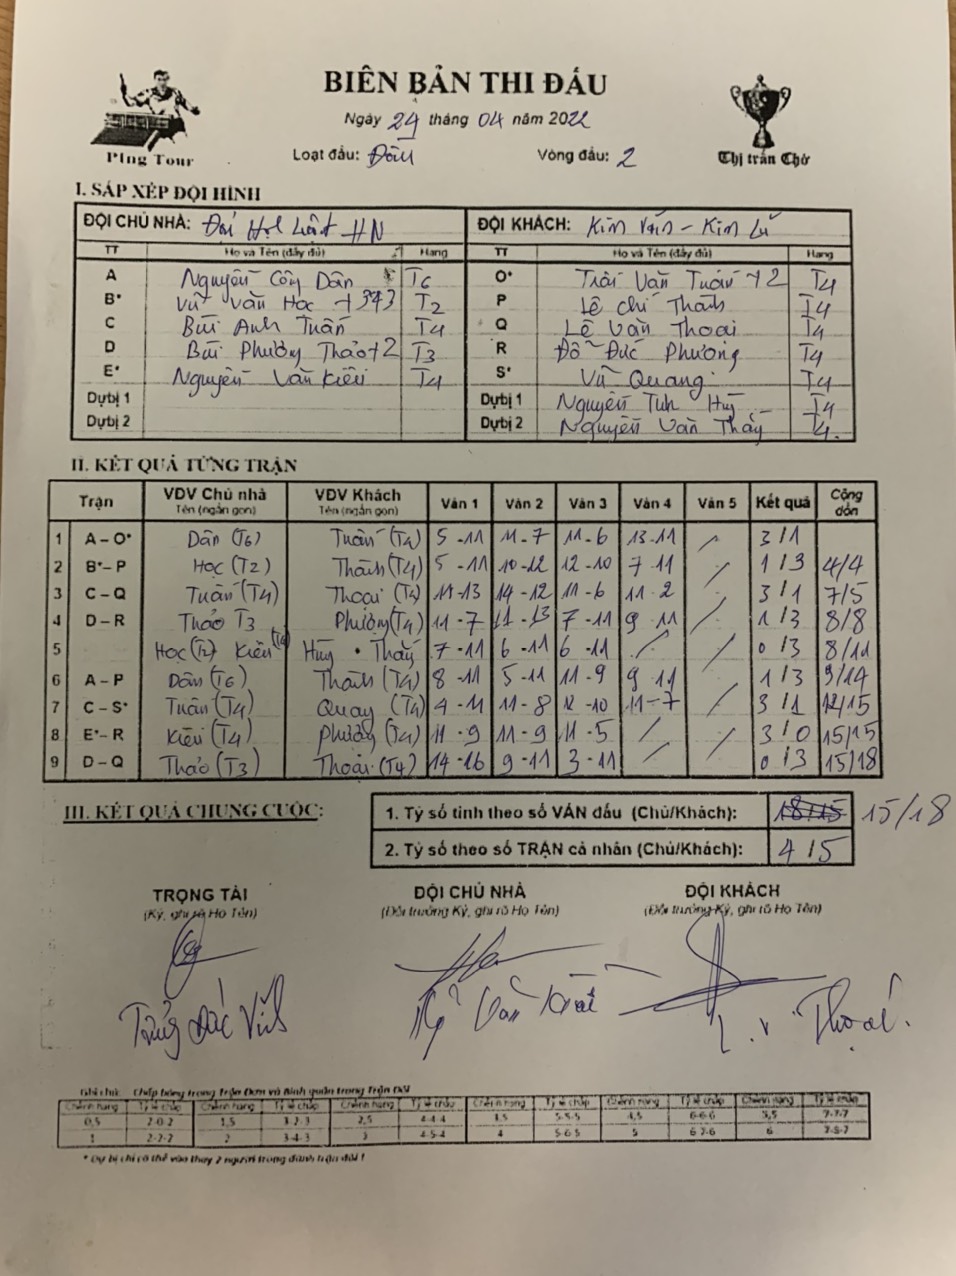 BIÊN BẢN THI ĐẤU
Ngày 24 tháng 04 năm 2022
Ping Tour
Loạt đấu: Đôn
Vòng đấu: 2
Thị trấn Chờ
I. SẮP XẾP ĐỘI HÌNH
ĐỘI CHỦ NHÀ: Đại Học Luật HN ĐỘI KHÁCH: Kim Văn - Kim Lũ
TT Họ và Tên (đầy đủ) Hạng TT Họ và Tên (đầy đủ) Hạng
A Nguyễn Công Dân T6 O* Trần Văn Tuấn +2 T4
B* Vũ Văn Học +373 T2 P Lê Chí Thành T4
C Bùi Anh Tuấn T4 Q Lê Văn Thoại T4
D Bùi Phương Thảo +2 T3 R Đỗ Đức Phương T4
E* Nguyễn Văn Kiên T4 S* Vũ Quang T4
Dự bị 1 Dự bị 1 Nguyễn Huy T4
Dự bị 2 Dự bị 2 Nguyễn Văn Thắng T4
II. KẾT QUẢ TỪNG TRẬN
Trận VDV Chủ nhà Tên (ngắn gọn) VDV Khách Tên (ngắn gọn) Ván 1 Ván 2 Ván 3 Ván 4 Ván 5 Kết quả Cộng dồn
1 A – O* Dân (T6) Tuấn (T4) 5 - 11 11 - 7 11 - 6 13 - 11 / 3 / 1
2 B* – P Học (T2) Thành (T4) 5 - 11 10 - 12 12 - 10 7 - 11 / 1 / 3 4/4
3 C – Q Tuấn (T4) Thoại (T4) 11 - 13 14 - 12 11 - 6 11 - 2 / 3 / 1 7/5
4 D – R Thảo T3 Phương (T4) 11 - 7 11 - 13 7 - 11 9 - 11 / 1 / 3 8/8
5 Học (T2) Kiên (T4) Huy • Thắng 7 - 11 6 - 11 6 - 11 / / 0 / 3 8/11
6 A – P Dân (T6) Thành (T4) 8 - 11 5 - 11 11 - 9 9 - 11 / 1 / 3 9/14
7 C – S* Tuấn (T4) Quang (T4) 4 - 11 11 - 8 12 - 10 11 - 7 / 3 / 1 12/15
8 E* – R Kiên (T4) Phương (T4) 11 - 9 11 - 9 11 - 5 / / 3 / 0 15/15
9 D – Q Thảo (T3) Thoại (T4) 14 - 16 9 - 11 3 - 11 0 / 3 15/18
III. KẾT QUẢ CHUNG CUỘC:
1. Tỷ số tính theo số VÁN đấu (Chủ/Khách): 18/15 15/18
2. Tỷ số theo số TRẬN cá nhân (Chủ/Khách): 4 / 5
TRỌNG TÀI ĐỘI CHỦ NHÀ ĐỘI KHÁCH
(Ký, ghi rõ Họ Tên) (Đội trưởng Ký, ghi rõ Họ Tên) (Đội trưởng Ký, ghi rõ Họ Tên)
Ghi chú: Chấp bóng trong Trận Đơn và Bình quân trong Trận Đôi
Chênh hạng Tỷ lệ chấp Chênh hạng Tỷ lệ chấp Chênh hạng Tỷ lệ chấp Chênh hạng Tỷ lệ chấp Chênh hạng Tỷ lệ chấp Chênh hạng Tỷ lệ chấp
0,5 2-0-2 1,5 3-2-3 2,5 4-4-4 3,5 5-5-5 4,5 6-6-6 5,5 7-7-7
1 2-2-2 2 3-4-3 3 4-5-4 4 5-6-5 5 6-7-6 6 7-8-7
* Dự bị chỉ có thể vào thay 2 người trong đánh trận đôi !